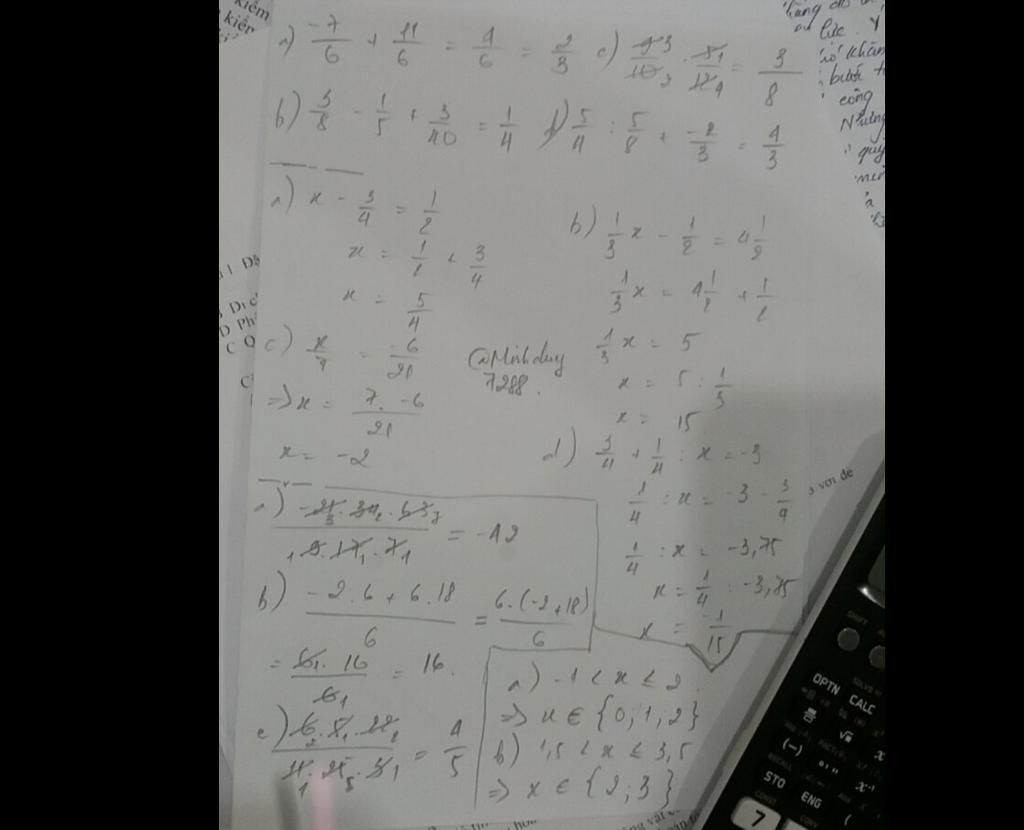 kiểm
kiến
a) -7/6 + 11/6 = 4/6 = 2/3 c) 9 3/10 2 . 5 1/12 4 = 3/8
b) 3/8 - 1/5 + 3/40 = 1/4 d) 5/4 : 5/8 + -2/3 = 4/3
a) x - 3/4 = 1/2
x = 1/2 + 3/4
x = 5/4
b) 1/3 x - 1/2 = 4 1/2
1/3 x = 4 1/2 + 1/2
1/3 x = 5
x = 5 : 1/3
x = 15
c) x/7 = -6/21
=> x = 7. -6/21
x = -2
@Minhduy
7288.
d) 3/4 + 1/4 : x = -3
1/4 : x = -3 - 3/4
1/4 : x = -3,75
x = 1/4 : -3,75
x = -1/15
a) -21 3 . 34 2 . 63 7/1 9 . 17 1 . 7 1 = -42
b) -2.6 + 6.18/6 = 6.(-2+18)/6
= 6 1. 16/6 1 = 16.
c) 6 2 . 5 1 . 22 2/11 1 . 25 5 . 3 1 = 4/5
a) -1 < x ≤ 2
=> x ∈ {0; 1; 2}
b) 1,5 < x ≤ 3,5
=> x ∈ {2; 3}
lực.
bước
công
với đề
SHIFT
OPTN CALC
√
(-)
x⁻¹
STO ENG (
7